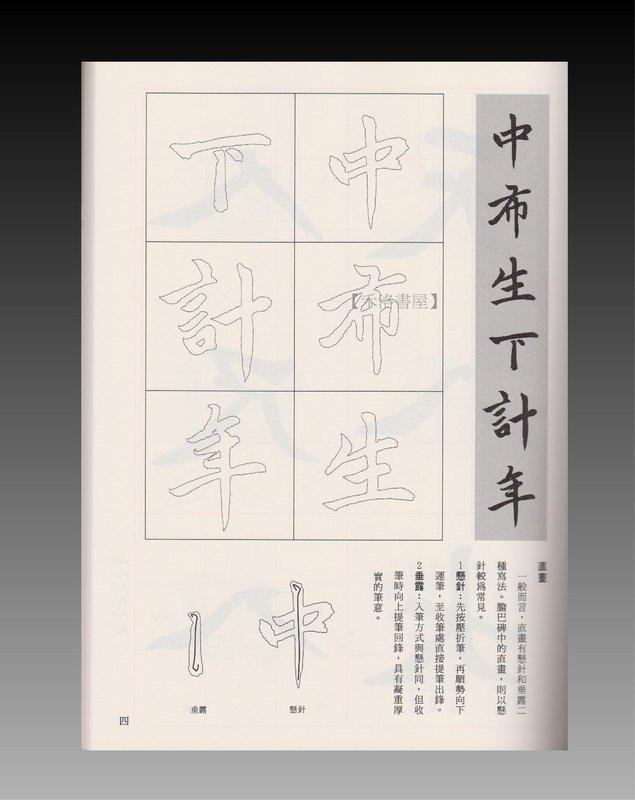 中布生下計年
中
布
生
下
計
年
【禾洛書屋】
直畫
一般而言，直畫有懸針和垂露二
種寫法。膽巴碑中的直畫，則以懸
針較爲常見。
1懸針：先按壓折筆，再順勢向下
運筆，至收筆處直接提筆出鋒。
2垂露：入筆方式與懸針同，但收
筆時向上提筆回鋒，具有凝重厚
實的筆意。
中
懸針
垂露
四